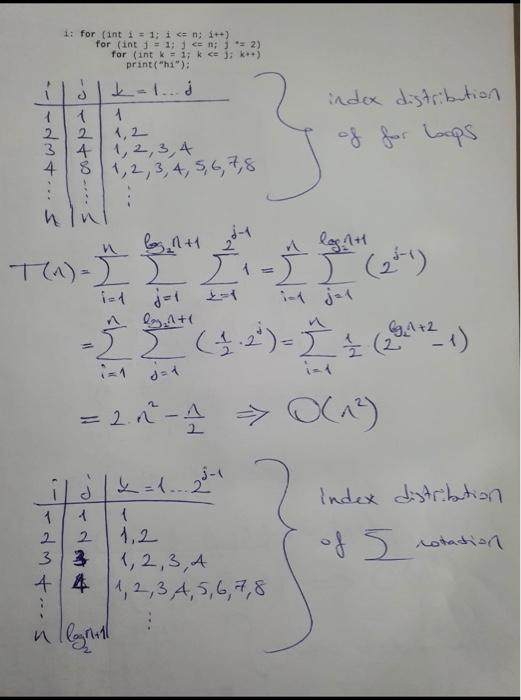 i: for (int i = 1; i <= n; i++)
for (int j = 1; j <= n; j *= 2)
for (int k = 1; k <= j; k++)
print("hi");
i | j | k = 1...j
1 | 1 | 1
2 | 2 | 1,2
3 | 4 | 1,2,3,4
4 | 8 | 1,2,3,4,5,6,7,8
⋮ | ⋮ | ⋮
n | n |
index distribution
of for loops
T(n) = ∑_{i=1}^{n} ∑_{j=1}^{log₂n+1} ∑_{k=1}^{2^{j-1}} 1 = ∑_{i=1}^{n} ∑_{j=1}^{log₂n+1} (2^{j-1})
= ∑_{i=1}^{n} ∑_{j=1}^{log₂n+1} (1/2 · 2^j) = ∑_{i=1}^{n} 1/2 · (2^{log₂n+2} - 1)
= 2·n² - n/2 ⇒ O(n²)
i | j | k = 1...2^{j-1}
1 | 1 | 1
2 | 2 | 1,2
3 | 3 | 1,2,3,4
4 | 4 | 1,2,3,4,5,6,7,8
⋮ | | ⋮
n | log₂n+1 |
Index distribution
of ∑ notation